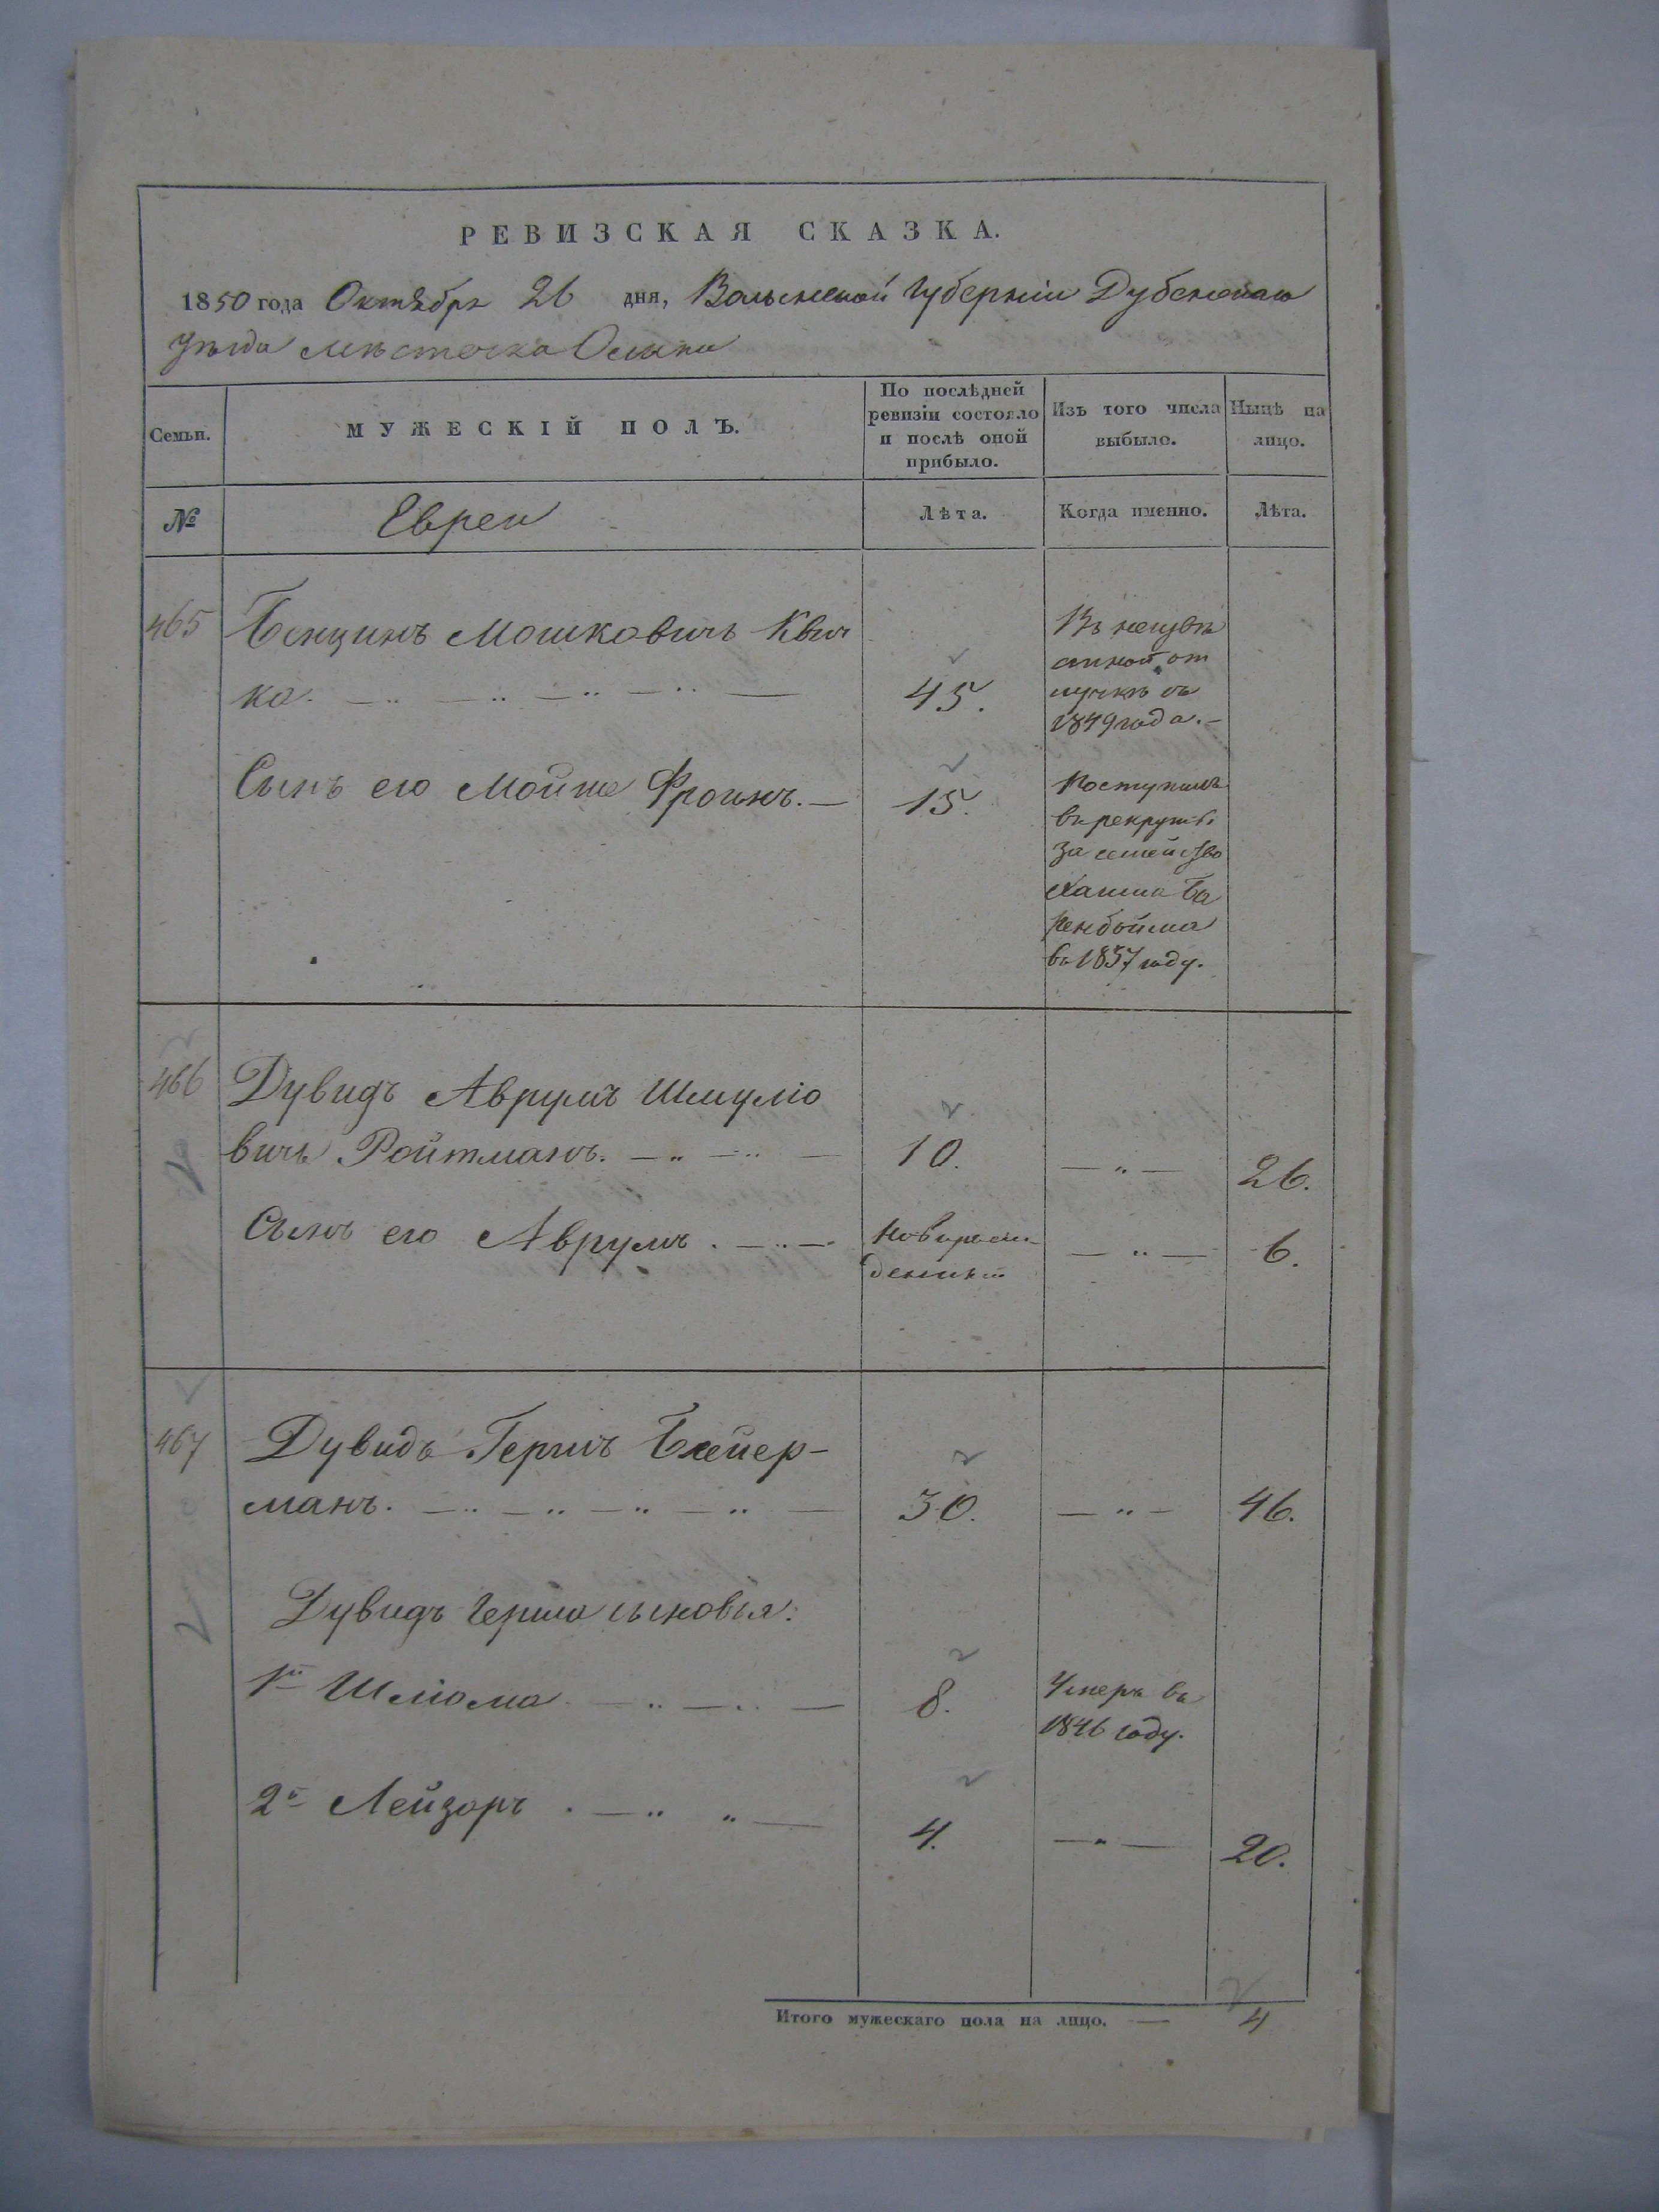 РЕВИЗСКАЯ СКАЗКА.
1850 года Октября 26 дня, Волынской Губерніи Дубенскаго
уѣзда мѣстечка Олыки
Семьи.
МУЖЕСКІЙ ПОЛЪ.
По послѣдней
ревизіи состояло
и послѣ оной
прибыло.
Изъ того числа
выбыло.
Нынѣ на
лицо.
№
Евреи
Лѣта.
Когда именно.
Лѣта.
465
Бенционъ Мошковичъ Квит
ко.
45.
Въ неизвѣ
стной от
лучкѣ съ
1849 года.
Сынъ его Мойше Фроинъ.
15.
Поступилъ
въ рекруты
за семейство
Хаима Ба
ренбойма
въ 1837 году.
466
Дувидъ Аврумъ Шмуліо
вичъ Ройтманъ.
10.
26.
Сынъ его Аврумъ.
новорож
денный
6.
467
Дувидъ Гершъ Блейер-
манъ.
30.
46.
Дувидъ Герша сыновья:
1й Шліома
8.
Умеръ въ
1846 году.
2й Лейзоръ.
4.
20.
Итого мужескаго пола на лицо. — 4